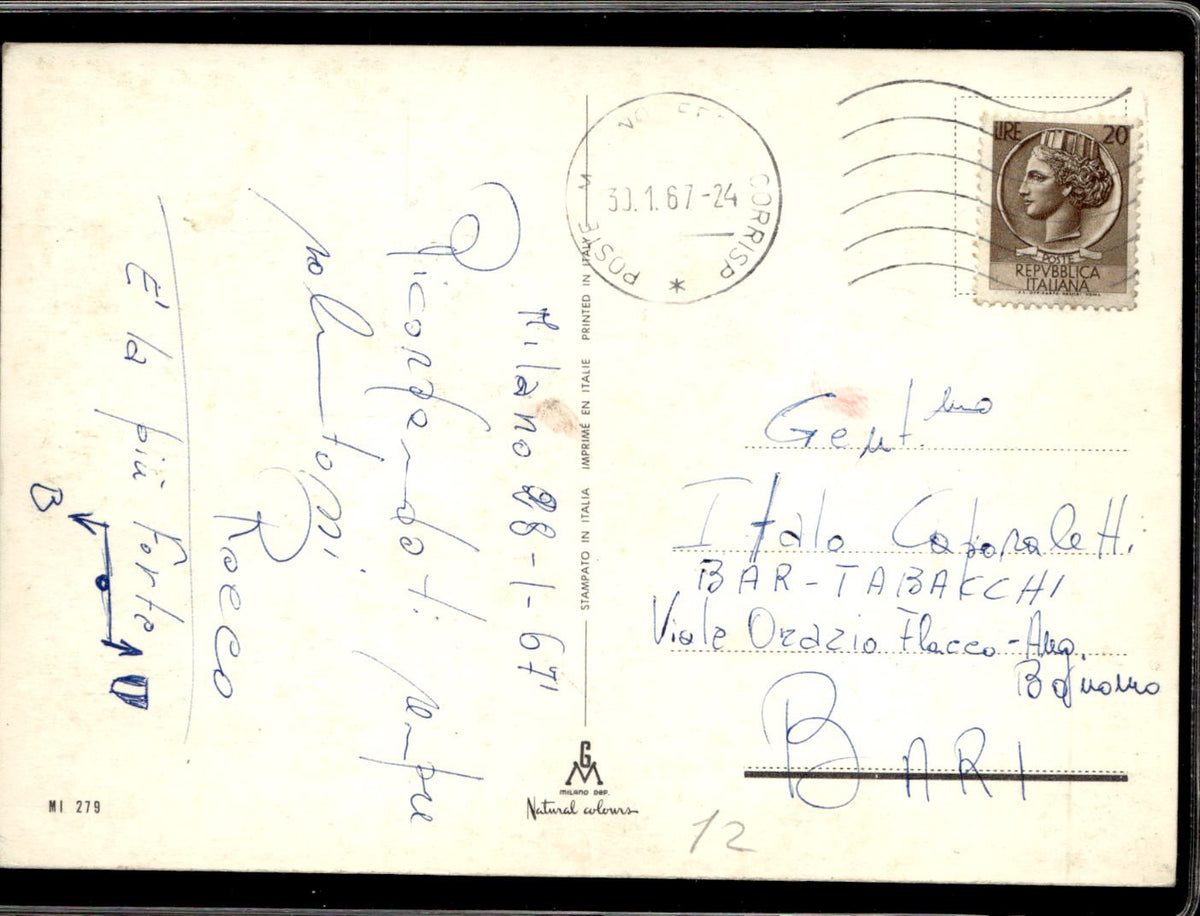 Milano 28-1-67
Ricordandoti sempre
salutomi
Rocco
E' la più forte
B
STAMPATO IN ITALIA IMPRIMÉ EN ITALIE PRINTED IN ITALY
G M
MILANO DEP.
Natural colours
MI 279
POSTE CORRISP *
30.1.67-24
LIRE 20
POSTE
REPVBBLICA
ITALIANA
Gent.mo
Italo Caporaletti
BAR-TABACCHI
Viale Orazio Flacco-Ang.
BARI
12